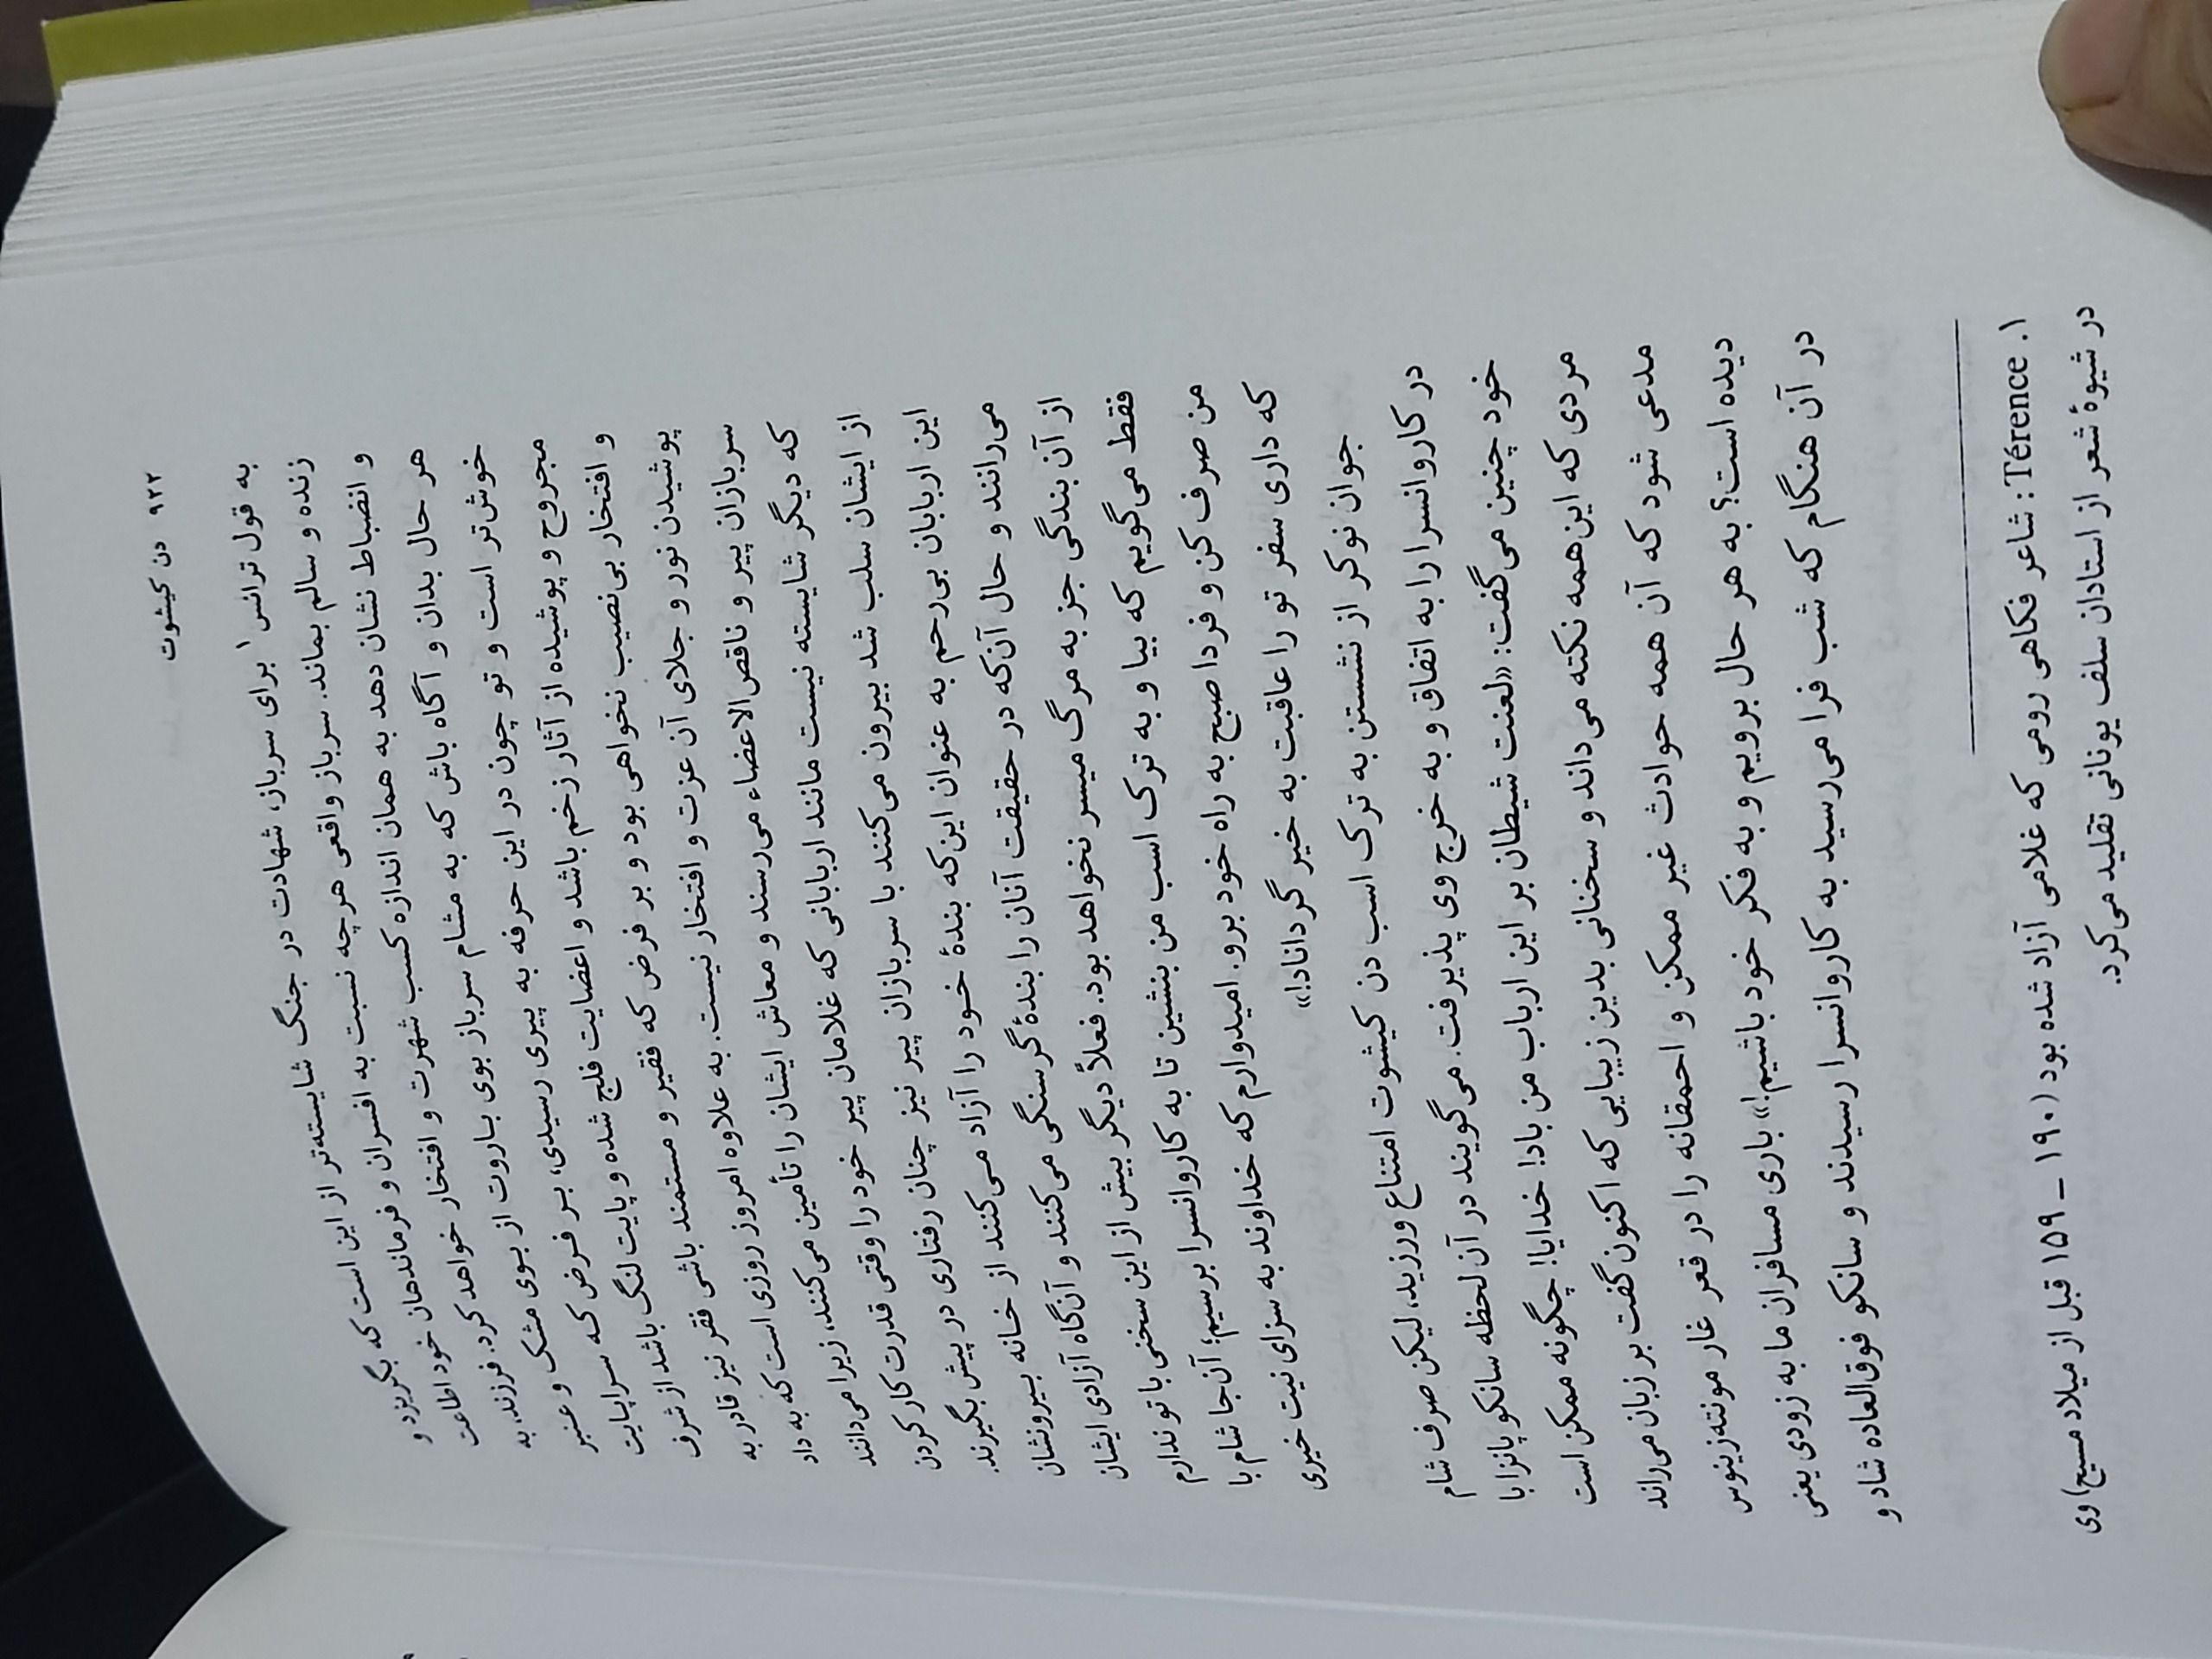 ۹۲۲ دن کیشوت
به قول ترانس۱ برای سرباز، شهادت در جنگ شایسته‌تر از این است که بگریزد و
زنده و سالم بماند. سرباز واقعی هرچه نسبت به افسران و فرماندهان خود اطاعت
و انضباط نشان دهد به همان اندازه کسب شهرت و افتخار خواهد کرد. فرزند، به
هر حال بدان و آگاه باش که به مشام سرباز بوی باروت از بوی مشک و عنبر
خوش‌تر است و تو چون در این حرفه به پیری رسیدی، بر فرض که سراپایت
مجروح و پوشیده از آثار زخم باشد و اعضایت فلج شده و پایت لنگ باشد از شرف
و افتخار بی‌نصیب نخواهی بود و بر فرض که فقیر و مستمند باشی فقر نیز قادر به
پوشیدن نور و جلای آن عزت و افتخار نیست. به علاوه امروز روزی است که به داد
سربازان پیر و ناقص‌الاعضاء می‌رسند و معاش ایشان را تأمین می‌کنند، زیرا می‌دانند
که دیگر شایسته نیست مانند اربابانی که غلامان پیر خود را وقتی قدرت کار کردن
از ایشان سلب شد بیرون می‌کنند با سربازان پیر نیز چنان رفتاری در پیش بگیرند.
این اربابان بی‌رحم به عنوان این‌که بندهٔ خود را آزاد می‌کنند از خانه بیرونشان
می‌رانند و حال آن‌که در حقیقت آنان را بندهٔ گرسنگی می‌کنند و آن‌گاه آزادی ایشان
از آن بندگی جز به مرگ میسر نخواهد بود. فعلاً دیگر بیش از این سخنی با تو ندارم
فقط می‌گویم که بیا و به ترک اسب من بنشین تا به کاروانسرا برسیم؛ آن‌جا شام با
من صرف کن و فردا صبح به راه خود برو. امیدوارم که خداوند به سزای نیت خیری
که داری سفر تو را عاقبت به خیر گرداناد!»
جوان نوکر از نشستن به ترک اسب دن کیشوت امتناع ورزید، لیکن صرف شام
در کاروانسرا را به اتفاق و به خرج وی پذیرفت. می‌گویند در آن لحظه سانکو پانزا با
خود چنین می‌گفت: «لعنت شیطان بر این ارباب من باد! خدایا! چگونه ممکن است
مردی که این‌همه نکته می‌داند و سخنانی بدین زیبایی که اکنون گفت بر زبان می‌راند
مدعی شود که آن همه حوادث غیر ممکن و احمقانه را در قعر غار مونته‌زینوس
دیده است؟ به هر حال برویم و به فکر خود باشیم!» باری مسافران ما به زودی یعنی
در آن هنگام که شب فرا می‌رسید به کاروانسرا رسیدند و سانکو فوق‌العاده شاد و
۱. Térence: شاعر فکاهی رومی که غلامی آزاد شده بود (۱۹۰ – ۱۵۹ قبل از میلاد مسیح) وی
در شیوهٔ شعر از استادان سلف یونانی تقلید می‌کرد.